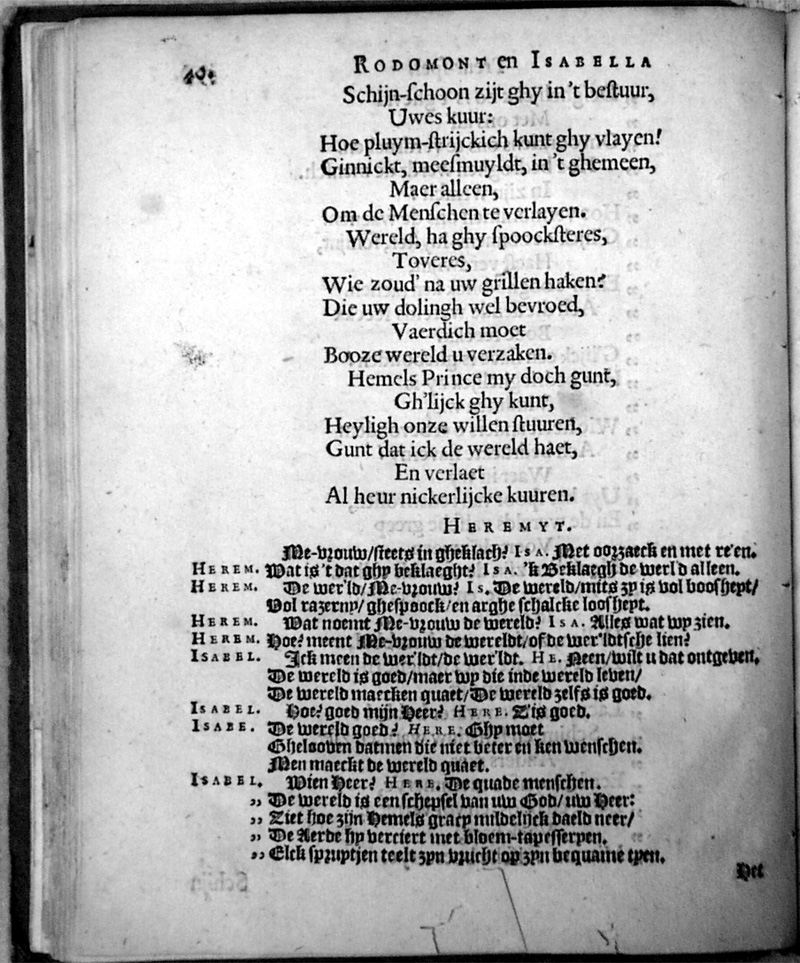 RODOMONT en ISABELLA
Schijn-ſchoon zijt ghy in 't beſtuur,
Uwes kuur:
Hoe pluym-ſtrijckich kunt ghy vlayen!
Ginnickt, meeſmuyldt, in 't ghemeen,
Maer alleen,
Om de Menſchen te verlayen.
Wereld, ha ghy ſpoockſteres,
Toveres,
Wie zoud' na uw grillen haken?
Die uw dolingh wel bevroed,
Vaerdich moet
Booze wereld u verzaken.
Hemels Prince my doch gunt,
Gh'lijck ghy kunt,
Heyligh onze willen ſtuuren,
Gunt dat ick de wereld haet,
En verlaet
Al heur nickerlijcke kuuren.
HEREMYT.
Me-vrouw/ſteets in gheklach? ISA. Met oorzaeck en met re'en.
HEREM. Wat is 't dat ghy beklaeght? ISA. 'k Beklaegh de werl'd alleen.
HEREM. De wer'ld/Me-vrouw? IS. De wereld/mits zy is vol boosheyt/
Vol razerny/gheſpoock/en arghe ſchalcke looſheyt.
HEREM. Wat noemt Me-vrouw de wereld? ISA. Alles wat wy zien.
HEREM. Hoe? meent Me-vrouw de wereldt/of de wer'ldtſche lien?
ISABEL. Ick meen de wer'ldt/de wer'ldt. HE. Neen/wilt u dat ontgeven.
De wereld is goed/maer wy die inde wereld leven/
De wereld maecken quaet/De wereld zelfs is goed.
ISABEL. Hoe? goed mijn Heer? HERE. T'is goed.
ISABE. De wereld goed? HERE. Ghy moet
Ghelooven datmen die niet beter en ken wenſchen.
Men maeckt de wereld quaet.
ISABEL. Wien Heer? HERE. De quade menſchen.
,, De wereld is een ſchepſel van uw God/uw Heer:
,, Ziet hoe zijn Hemels graep mildelijck daeld neer/
,, De Aerde hy verciert met bloem-tapeſſeryen.
,, Elck ſpruytjen teelt zyn vrucht op zyn bequame tyen.
Het